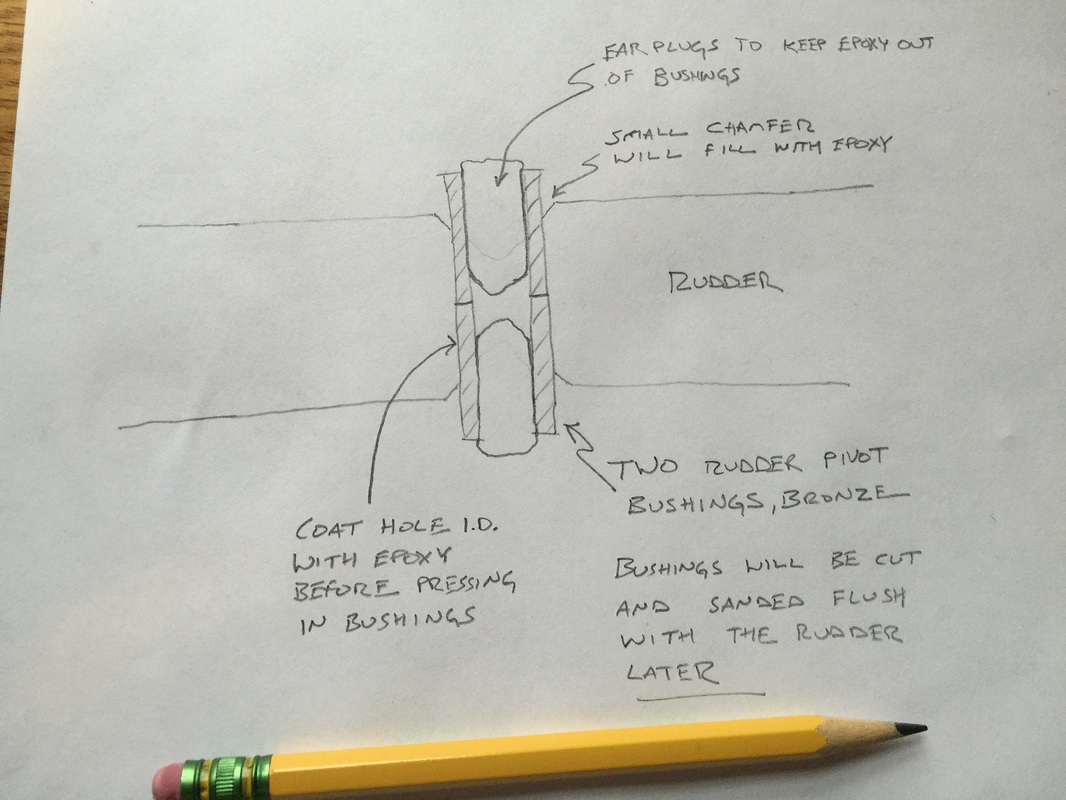 EAR PLUGS TO KEEP EPOXY OUT
OF BUSHINGS
SMALL CHAMFER
WILL FILL WITH EPOXY
RUDDER
TWO RUDDER PIVOT
BUSHINGS, BRONZE
COAT HOLE I.D.
WITH EPOXY
BEFORE PRESSING
IN BUSHINGS
BUSHINGS WILL BE CUT
AND SANDED FLUSH
WITH THE RUDDER
LATER